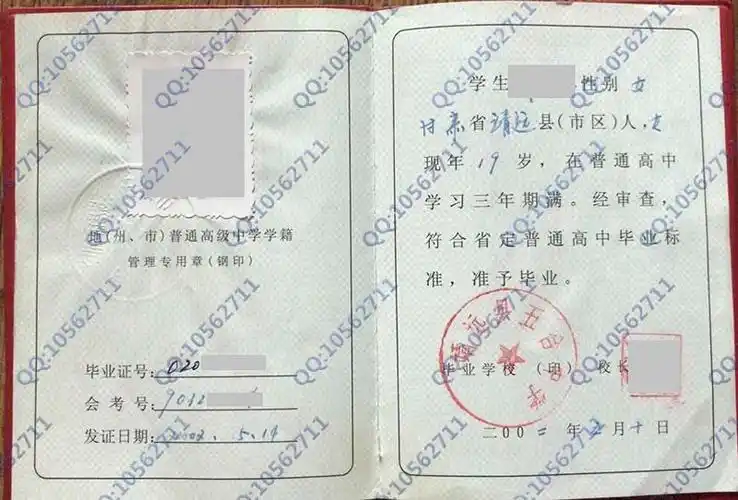 地(州、市)普通高级中学学籍
管理专用章(钢印)
毕业证号:020
会考号:9012
发证日期:2002.5.14
学生 性别 女
甘肃省靖远县(市区)人,
现年19岁,在普通高中
学习三年期满。经审查,
符合省定普通高中毕业标
准,准予毕业。
毕业学校(印) 校长
二〇〇二年 月十日
靖远县五合中学
QQ:10562711